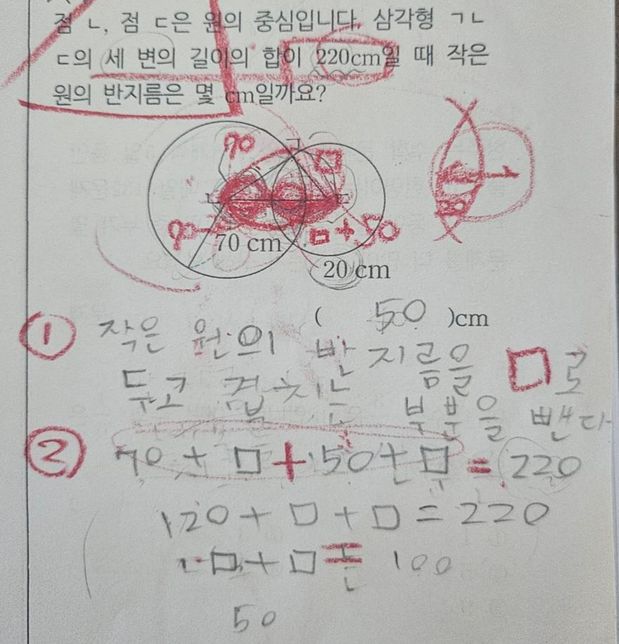 점 ㄴ, 점 ㄷ은 원의 중심입니다. 삼각형 ㄱㄴ
ㄷ의 세 변의 길이의 합이 220cm일 때 작은
원의 반지름은 몇 cm일까요?
70
□
ㄱ
ㄴ
ㄷ
70
□+50
70 cm
20 cm
( 50 )cm
① 작은 원의 반지름을 □로
두고 겹치는 부분을 뺀다
② 70+□+50+□=220
120+□+□=220
□+□=100
50